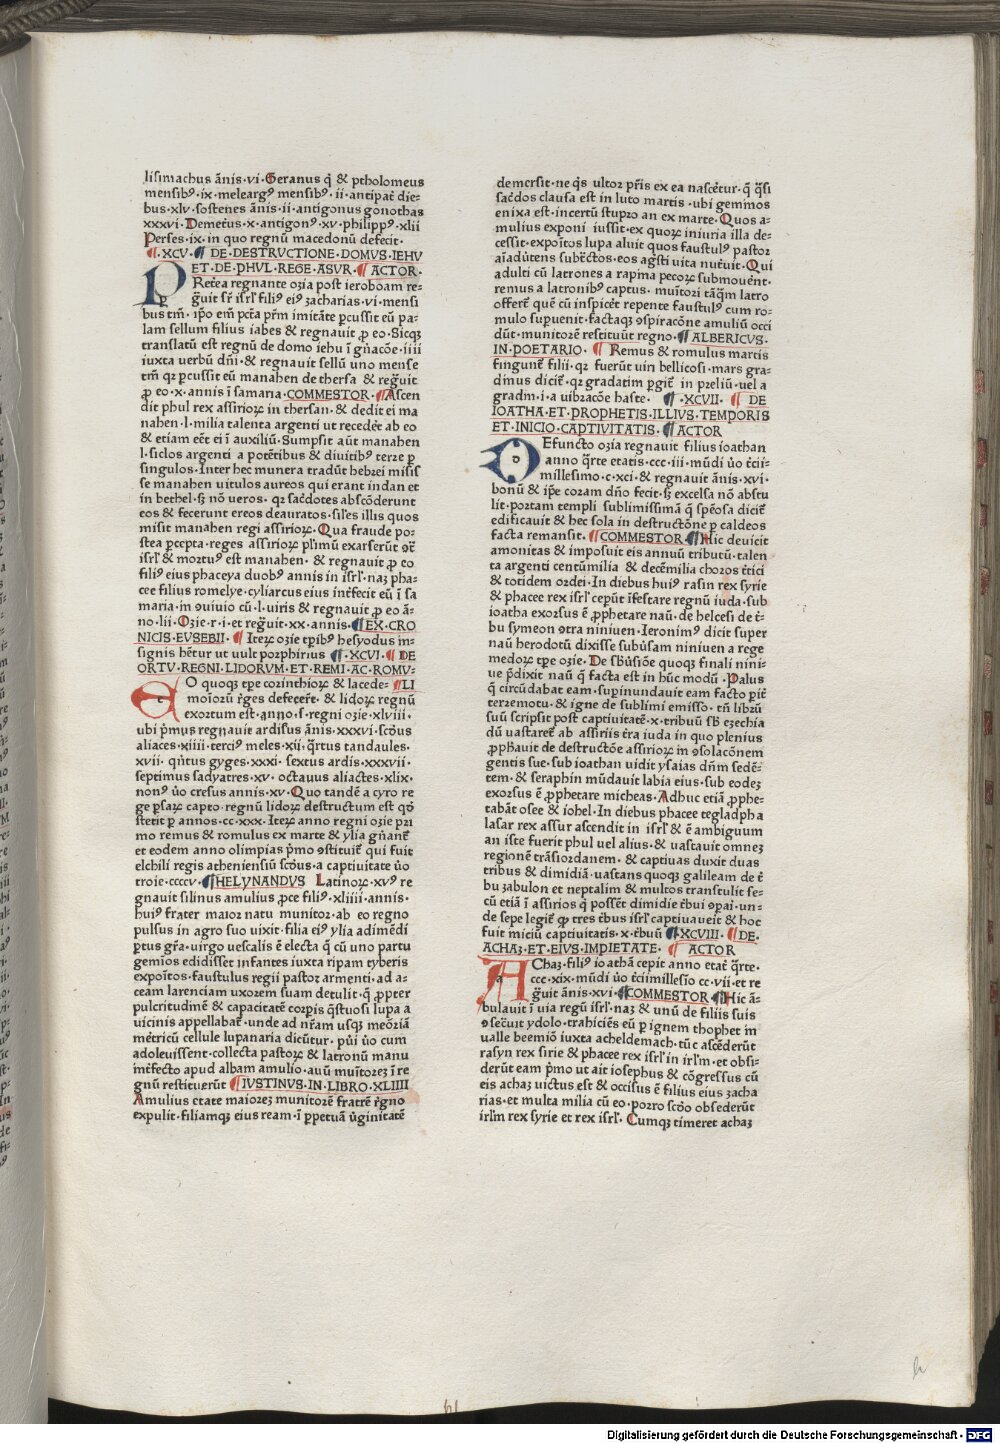 lisimachus ãnis·vi·Geranus q̃ & ptholomeus
mensibꝰ·ix·meleargꝰ mensibꝰ·ii·antipat̃ die-
bus·xlv·sostenes ãnis·ii·antigonus gonothas
xxxvi·Demetr̃us·x·antigonꝰ·xv·philippꝰ·xlii
Perses·ix·in quo regnũ macedonũ defecit·
¶·XCV·¶ DE·DESTRVCTIONE·DOMVS·IEHV
ET·DE·PHVL·REGE·ASVR·¶ ACTOR·
PRet̃ea regnante ozia post ieroboam re-
g̃uit sr̃ isrl̃ filiꝰ eiꝰ zacharias·vi·mensi
bus tm̃· ip̃o em̃ pct̃a pr̃m imitãte ꝑcussit eũ pa-
lam sellum filius iabes & regnauit ꝓ eo·Sicqꝫ
translatũ est regnũ de domo iehu ĩ gñacõe·iiii
iuxta uerbũ dñi·& regnauit sellũ uno mense
tm̃ qꝛ ꝑcussit eũ manahen de thersa & reg̃uit
ꝓ eo·x·annis ĩ samaria·COMMESTOR·¶Ascen
dit phul rex assirioꝝ in thersan·& dedit ei ma
nahen·l·milia talenta argenti ut recedẽt ab eo
& etiam eẽt ei ĩ auxiliũ·Sumpsit aũt manahen
l·siclos argenti a potẽtibus & diuitibꝰ terre ꝑ
singulos·Inter hec munera tradũt hebrei misis
se manahen uitulos aureos qui erant indan et
in bethel·sꝫ nõ ueros· qꝛ sac̃dotes abscõderunt
eos & fecerunt ereos deauratos·sil̃es illis quos
misit manahen regi assirioꝝ·Qua fraude po-
stea ꝑcepta·reges assirioꝝ pl̃imũ exarserũt ꝯt̃
isrl̃ & mortuꝰ est manahen· & regnauit ꝓ eo
filiꝰ eius phaceya duobꝰ annis in isrl̃·naꝫ pha-
cee filius romelye·cyliarcus eius int̃fecit eũ ĩ sa
maria·in ꝯuiuio cũ·l·uiris & regnauit ꝓ eo ã-
no·lii·Ozie·r·i·et reg̃uit·xx·annis·¶EX·CRO
NICIS·EVSEBII·¶ Iteꝝ ozie tp̃ibꝰ hesyodus in-
signis hẽtur ut uult porphirius ¶·XCVI·¶ DE
ORTV·REGNI·LIDORVM·ET·REMI·AC·ROMV-
EO quoqꝫ tp̃e corinthioꝝ & lacede-¶LI
moĩorũ r̃ges defecer̃t·& lidoꝝ regnũ
exortum est·anno·s·regni ozie·xlviii·
ubi p̃mus regnauit ardisus ãnis·xxxvi·scđus
aliaces·xiiii·terciꝰ meles·xii·q̃rtus tandaules·
xvii· qĩtus gyges·xxxi·sextus ardis·xxxvii·
septimus sadyatres·xv· octauus aliactes·xlix·
nonꝰ ũo cresus annis·xv·Quo tandẽ a cyro re
ge ꝑsaꝝ capto·regnũ lidoꝝ destructum est qđ
stetit ꝑ annos·cc·xxx·Iteꝝ anno regni ozie pri
mo remus & romulus ex marte & ylia gñant̃
et eodem anno olimpias p̃mo ꝯstituit̃ qui fuit
elchili regis atheniensiũ scđus·a captiuitate ũo
troie·ccccv·¶HELYNANDVS Latinoꝝ·xvꝰ re
gnauit silinus amulius ꝓce filiꝰ·xliiii·annis·
huiꝰ frater maior natu munitor·ab eo regno
pulsus in agro suo uixit·filia eiꝰ ylia adimẽdi
ꝑtus gr̃a·uirgo uescalis ẽ electa q̃ cũ uno partu
gemĩos edidisset infantes iuxta ripam tyberis
expoĩtos·faustulus regii pastor armenti·ad a-
ceam larenciam uxorem suam detulit·q̃ ꝓpter
pulcritudinẽ & capacitatẽ corꝑis q̃stuosi lupa a
uicinis appellabat̃·unde ad nr̃am usqꝫ meõriã
mer̃tricũ cellule lupanaria dicũtur·pũi ũo cum
adoleuissent·collecta pastoꝝ & latronũ manu
int̃fecto apud albam amulio·auũ muĩtoreꝫ ĩ re
gnũ restituerũt ¶IVSTINVS·IN·LIBRO·XLIIII
Amulius etate maioreꝫ munitorẽ fratrẽ r̃gno
expulit·filiamqꝫ eius ream·ĩ ꝑpetuã ũginitatẽ
demersit·ne q̃s ultor pr̃is ex ea nascet̃ur·q̃ q̃si
sac̃dos clausa est in luto martis·ubi gemmos
enixa est·incertũ stupro an ex marte·Quos a-
mulius exponi iussit·ex quoꝝ iniuria illa de-
cessit·expoĩtos lupa aluit quos faustulꝰ pastor
aĩadũtens subẽctos·eos ag̃sti uita nut̃uit·Qui
adulti cũ latrones a rapina pecoꝝ submouẽnt·
remus a latronibꝰ captus·muĩtori tãq̃m latro
offert̃ quẽ cũ inspicẽt repente faustulꝰ cum ro-
mulo suꝑuenit·factaqꝫ ꝯspiracõne amuliũ occi
dũt·munitorẽ restituũt regno·¶ALBERICVS·
IN·POETARIO·¶ Remus & romulus martis
finguntꝰ filii·qꝛ fuerũt uiri bellicosi·mars gra-
dinus dicit̃·qꝛ gradatim ꝑgit̃ in preliũ·uel a
gradin·i·a uibracõe haste· ¶·XCVII·¶ DE
IOATHA·ET·PROPHETIS·ILLIVS·TEMPORIS
ET·INICIO·CAPTIVITATIS·¶ACTOR
DEfuncto ozia regnauit filius ioathan
anno q̃rte etatis·ccc·iii·mũdi ũo t̃cii-
millesimo·c·xci·& regnauit ãnis·xvi·
bonũ & ip̃e coram dño fecit·sꝫ excelsa nõ abstu
lit·portam templi sublimissimã q̃ sp̃eõsa dicit̃
edificauit & hec sola in destructõne ꝑ caldeos
facta remansit·¶COMMESTOR·¶Hic deuicit
amonitas & imposuit eis annuũ tributũ·talen
ta argenti centũmilia & decẽmilia choros t̃tici
& totidem ordei·In diebus huiꝰ rasin rex syrie
& phacee rex isrl̃ cepũt ĩfestare regnũ iuda·sub
ioatha exorsus ẽ ꝓphetare naũ·de helcesi de t̃-
bu symeon ꝯtra niniuen·Ieronimꝰ dicit super
naũ herodotũ dixisse subũsam niniuen a rege
medoꝝ tp̃e ozie·De sb̃ũsiõe quoqꝫ finali nini-
ue p̃dixit naũ q̃ facta est in hũc modũ·Palus
q̃ circũdabat eam·suꝑinundauit eam facto pit̃
terremotu·& igne de sublimi emisso·tñ librũ
suũ scripsit post captiuitatẽ·x·tribuũ sb̃ ezechia
dũ uastaret̃ ab assiriis t̃ra iuda in quo plenius
ꝓpħauit de destructõe assirioꝝ in ꝯsolacõnem
gentis sue·sub ioathan uidit ysaias dñm sedẽ-
tem·& seraphin mũdauit labia eius·sub eodeꝫ
exorsus ẽ ꝓphetare micheas·Adhuc etiã ꝓphe-
tabãt osee & iohel·In diebus phacee tegladpha
lasar rex assur ascendit in isrl̃ & ẽ ambiguum
an iste fuerit phul uel alius·& uastauit omneꝫ
regionẽ trãsiordanem·& captiuas duxit duas
tribus & dimidiã·uastans quoqꝫ galileam de t̃
bu zabulon et neptalim & multos transtulit se-
cũ etiã ĩ assirios q̃ possẽt dimidie t̃bui ꝯpar̃i·un-
de sepe legit̃ ꝙ tres t̃bus isrl̃ captiuauerit & hoc
fuit miciũ captiuitatis·x·t̃buũ ¶XCVIII·¶DE·
ACHAꝫ·ET·EIVS·IMPIETATE·¶ ACTOR
AChaꝫ·filiꝰ ioathã cepit anno etat̃ q̃rte·
ccc·xix·mũdi ũo t̃ciimillesĩo cc·vii·et re
g̃uit ãnis·xvi·¶COMMESTOR ¶Hic ã-
bulauit ĩ uia regũ isrl̃·naꝫ & unũ de filiis suis
ꝯsec̃uit ydolo·trahiciẽs eũ ꝑ ignem thophet in
ualle beemiõ iuxta acheldemach·tũc ascẽderũt
rasyn rex sirie & phacee rex isrl̃ in irl̃m·et obsi-
derũt eam p̃mo ut ait iosephus & cõgressus cũ
eis achaꝫ uictus est & occisus ẽ filius eius zacha
rias·et multa milia cũ eo·porro scđo obsederũt
irl̃m rex syrie et rex isrl̃·Cumqꝫ timeret achaꝫ
Digitalisierung gefördert durch die Deutsche Forschungsgemeinschaft · DFG